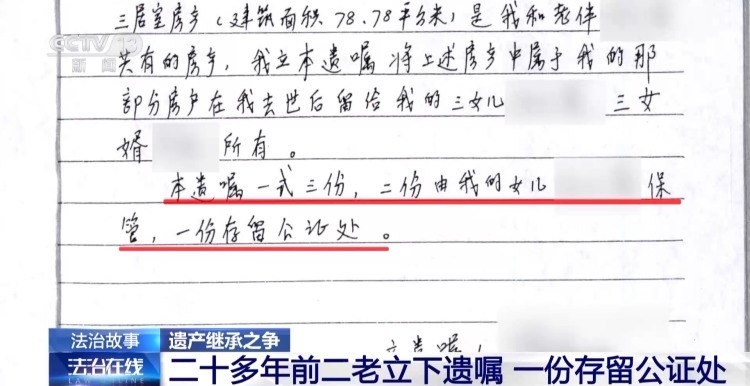 三居室房产（建筑面积78.78平方米）是我和老伴
CCTV 13
新闻
共有的房产，我立本遗嘱将上述房产中属于我的那
部分房产在我去世后留给我的三女儿 三女
婿 所有。
本遗嘱一式三份，二份由我的女儿 保
管，一份存留公证处。
立遗嘱
法治故事 遗产继承之争
法治在线
二十多年前二老立下遗嘱 一份存留公证处